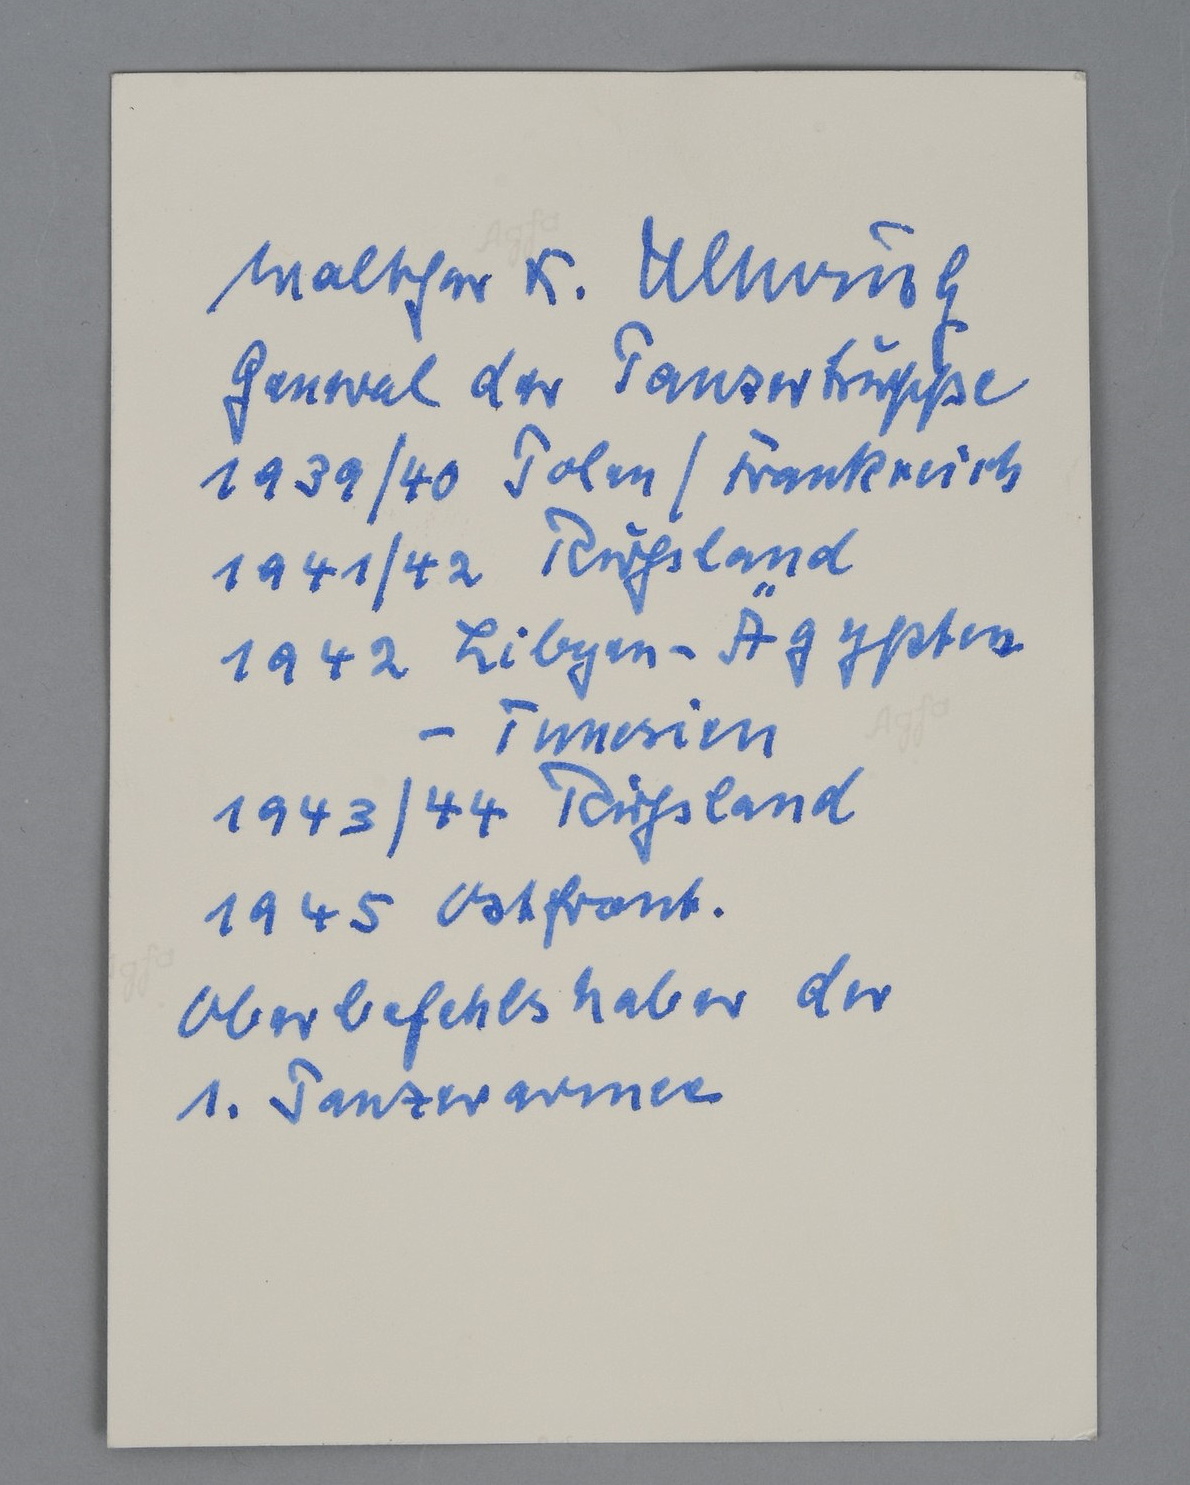 Walther K. Nehring
General der Panzertruppe
1939/40 Polen / Frankreich
1941/42 Rußland
1942 Libyen - Ägypten
- Tunesien
1943/44 Rußland
1945 Ostfront.
Oberbefehlshaber der
1. Panzerarmee